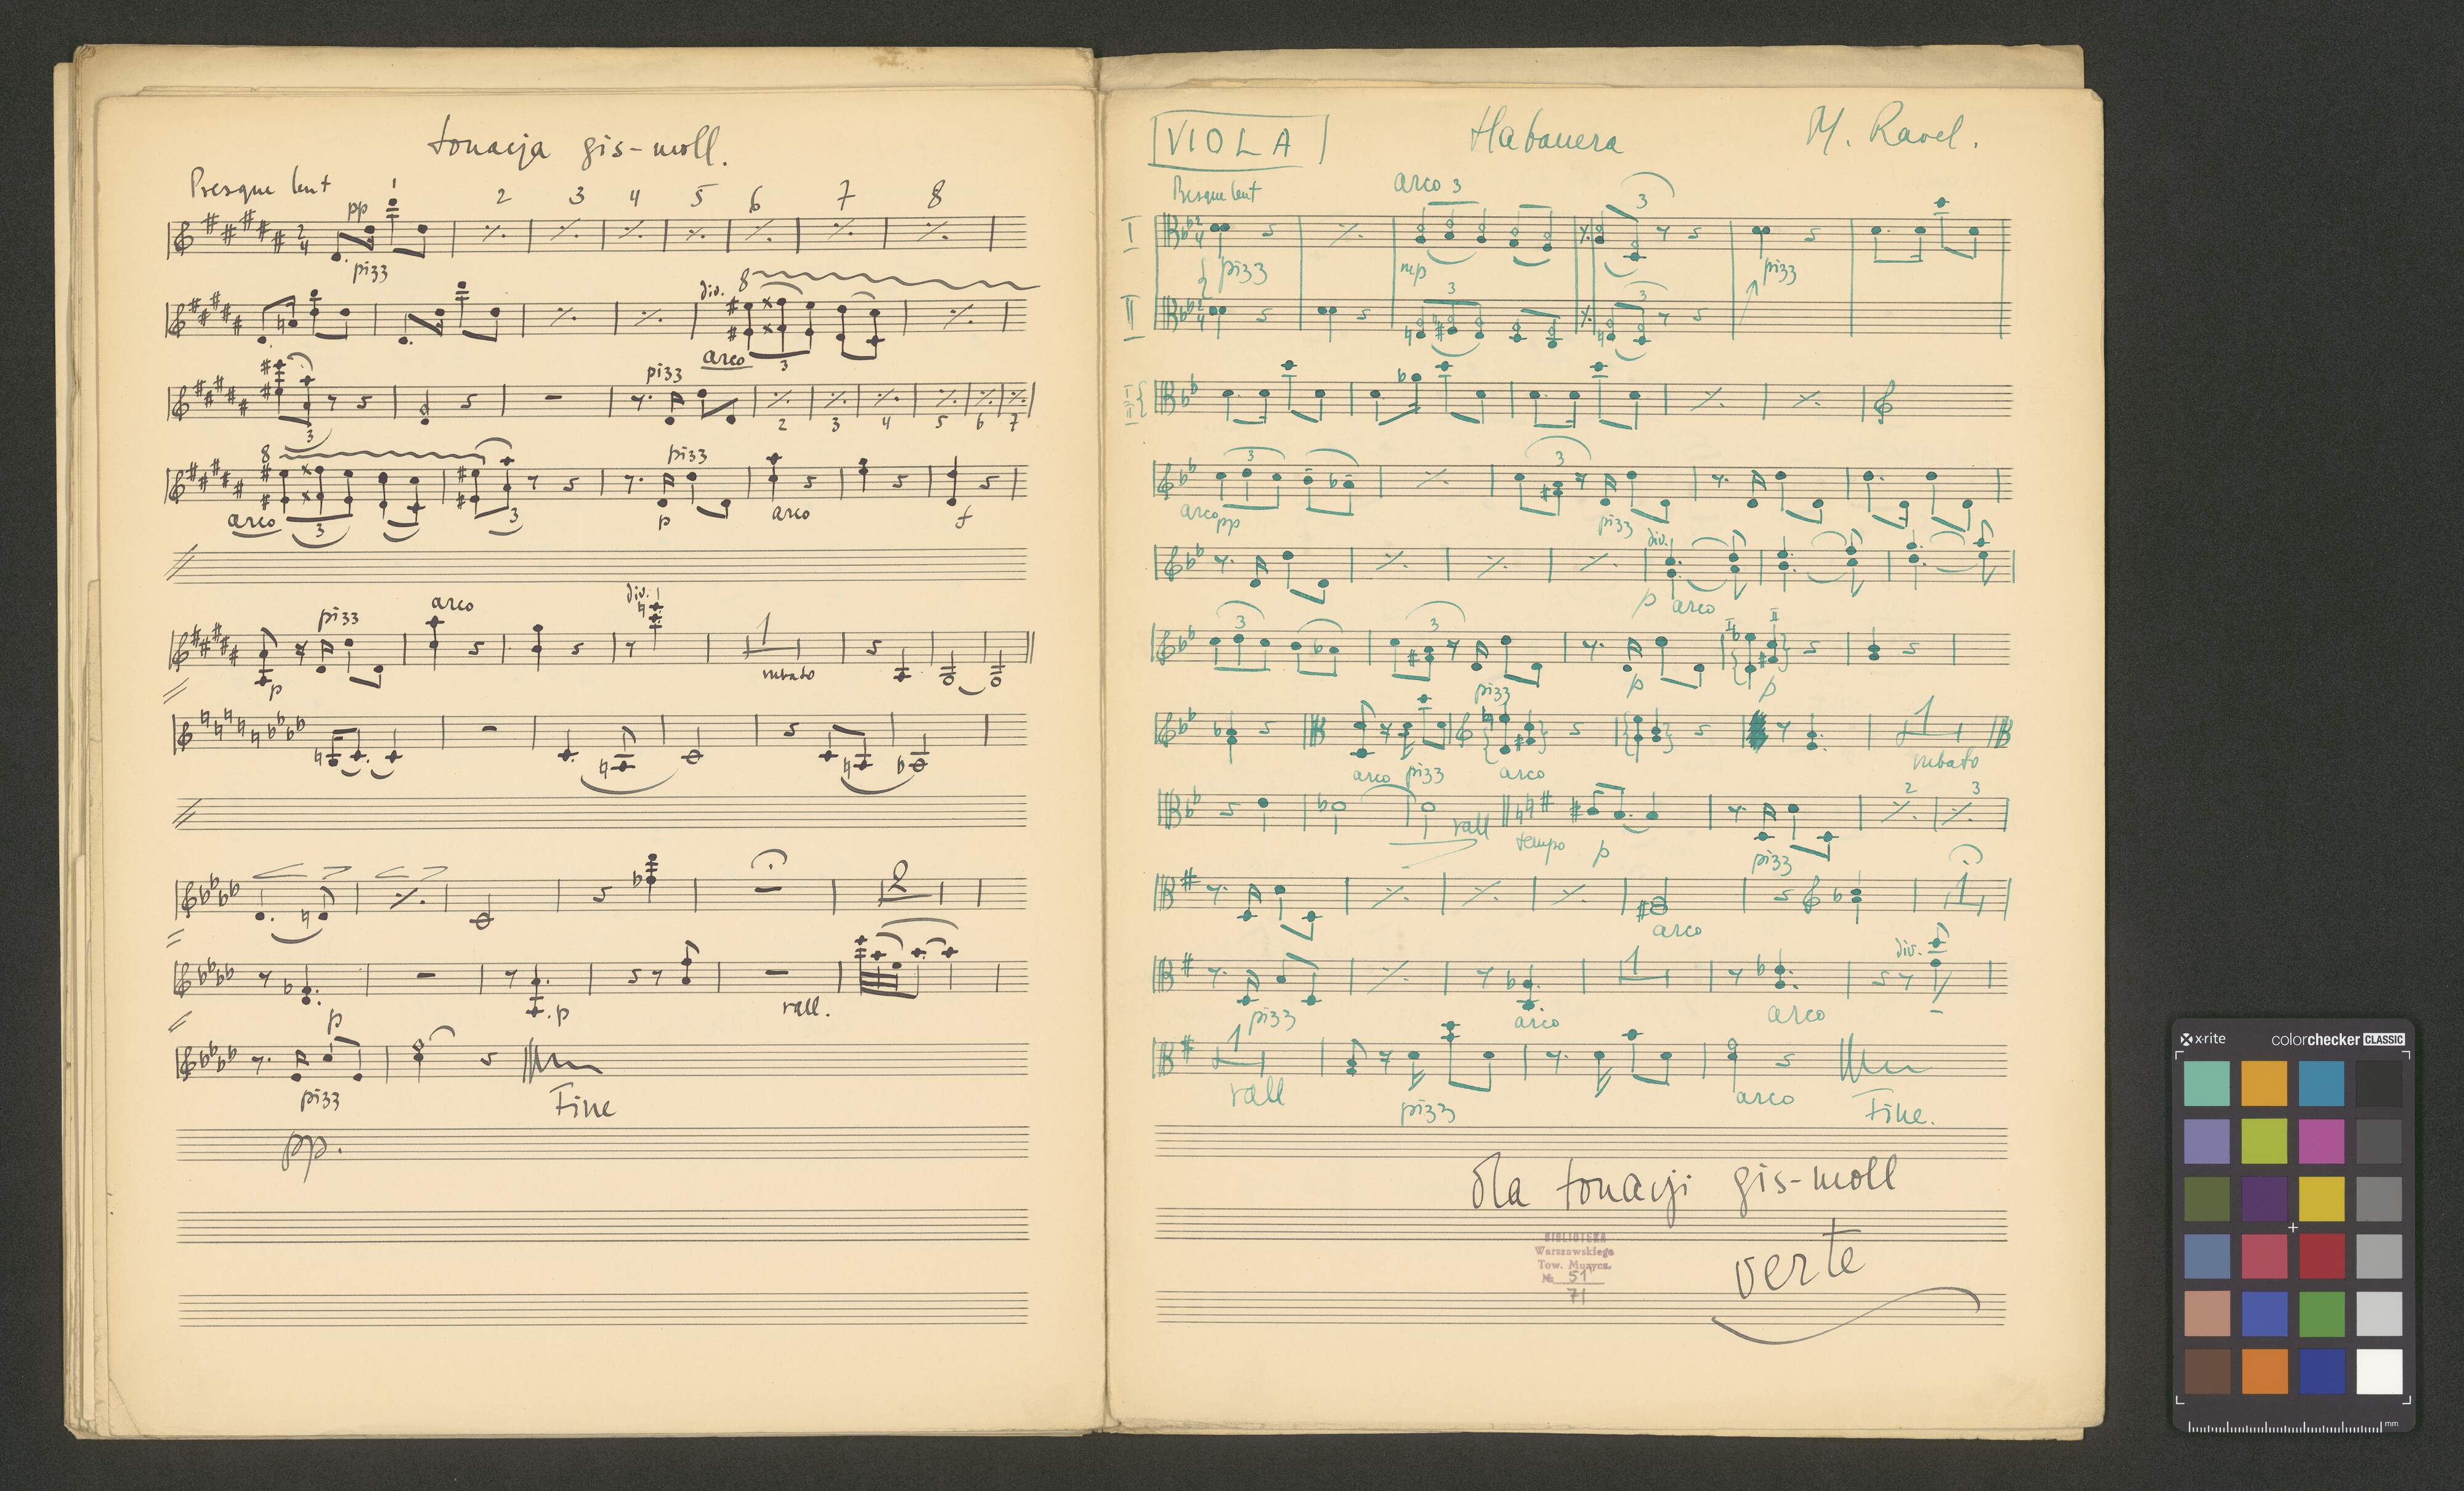 tonacja gis-moll.
Presque lent
pp 1 2 3 4 5 6 7 8
2
4
pizz
div. 8
arco 3
pizz
3 2 3 4 5 6 7
8 pizz
arco 3 3 p arco f
pizz arco div.
1
p rubato
2
p
p rall.
pizz Fine
pp.
VIOLA Habanera M. Ravel.
Presque lent arco 3 3
I 2
4
pizz mp pizz
II 2
4 3 3
I
II
3 3
arco pp pizz
div.
p arco
3 3 I II
p p
pizz 1
arco pizz arco rubato
2 3
rall
tempo p pizz
1
arco
1 div.
pizz arco arco
1
rall pizz arco Fine.
dla tonacji gis-moll
verte
BIBLIOTEKA
Warszawskiego
Tow. Muzycz.
№ 51
71
x-rite colorchecker CLASSIC
mm